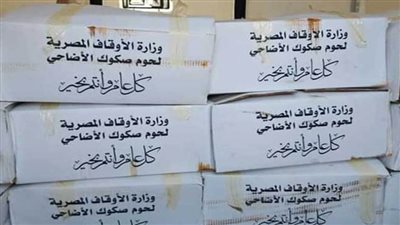 وزارة الأوقاف المصرية
لحوم صكوك الأضاحي
كل عام وأنتم بخير
وزارة الأوقاف المصرية
لحوم صكوك الأضاحي
كل عام وأنتم بخير
وزارة الأوقاف المصرية
لحوم صكوك الأضاحي
كل عام وأنتم بخير
وزارة الأوقاف المصرية
لحوم صكوك الأضاحي
كل عام وأنتم بخير
وزارة الأوقاف المصرية
لحوم صكوك الأضاحي
وزارة الأوقاف المصرية
لحوم صكوك الأضاحي